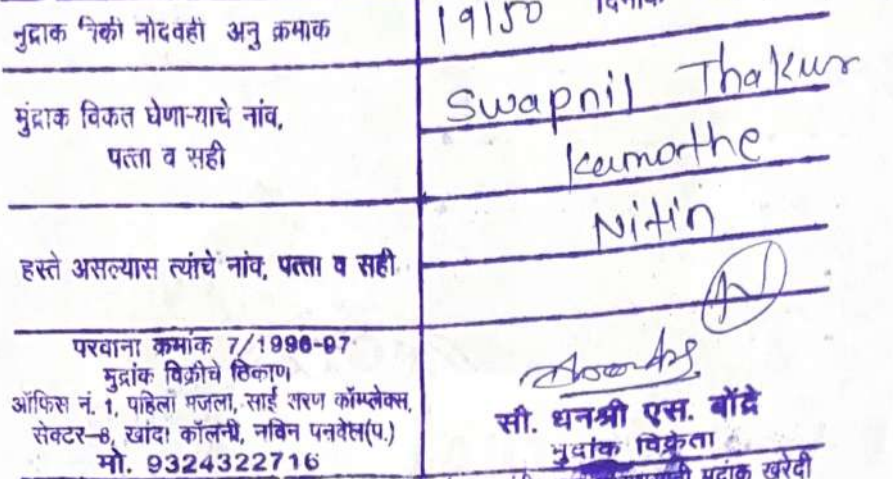 मुद्रांक विक्री नोंदवही अनु क्रमांक 19150 दिनांक
मुंद्रांक विकत घेणा-याचे नांव, Swapnil Thakur
पत्ता व सही Kamothe
Nitin
हस्ते असल्यास त्यांचे नांव, पत्ता व सही
परवाना क्रमांक 7/1996-97
मुद्रांक विक्रीचे ठिकाण
ऑफिस नं. 1, पहिला मजला, साई सरण कॉम्प्लेक्स,
सेक्टर-8, खांदा कॉलनी, नविन पनवेल(प.)
मो. 9324322716
सौ. धनश्री एस. बोंद्रे
मुद्रांक विक्रेता
मुद्रांक खरेदी